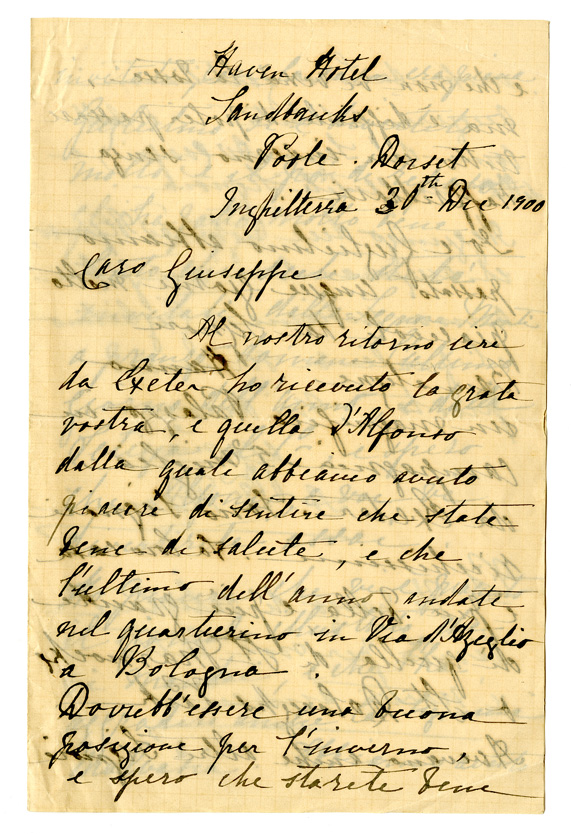 Haven Hotel
Sandbanks
Poole. Dorset
Inghilterra 30th Dic 1900
Caro Giuseppe
Al nostro ritorno ieri
da Exeter ho ricevuto la grata
vostra, e quella d'Alfonso
dalla quale abbiamo avuto
piacere di sentire che state
bene di salute, e che
l'ultimo dell'anno andate
nel quartierino in Via d'Azeglio
a Bologna.
Dovrebb'essere una buona
posizione per l'inverno,
e spero che starete bene